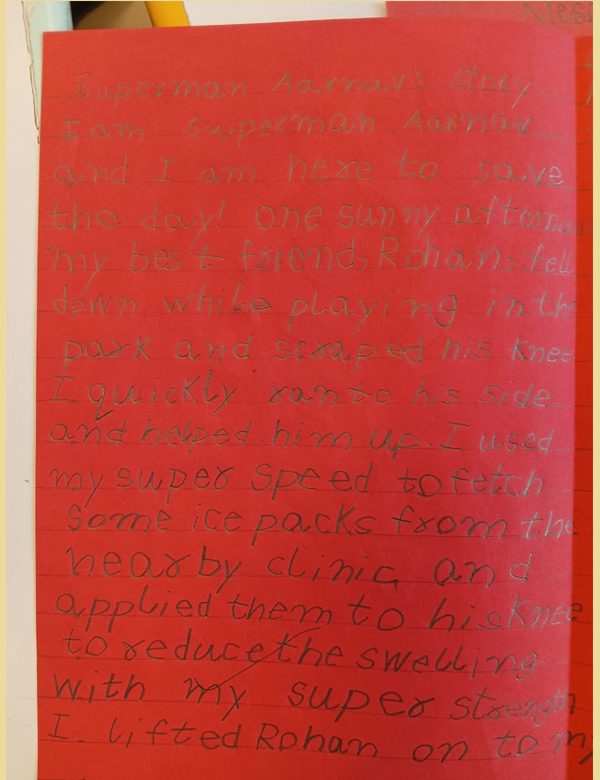 Mes
Superman Aarnav's Story
I am Superman Aarnav
and I am here to save
the day! one sunny afternoon
my best friend, Rohan, fell
down while playing in the
park and scraped his knee
I quickly ran to his side
and helped him up. I used
my super speed to fetch
Some ice packs from the
nearby clinic and
applied them to his knee
to reduce the swelling.
with my super strength
I. lifted Rohan on to my